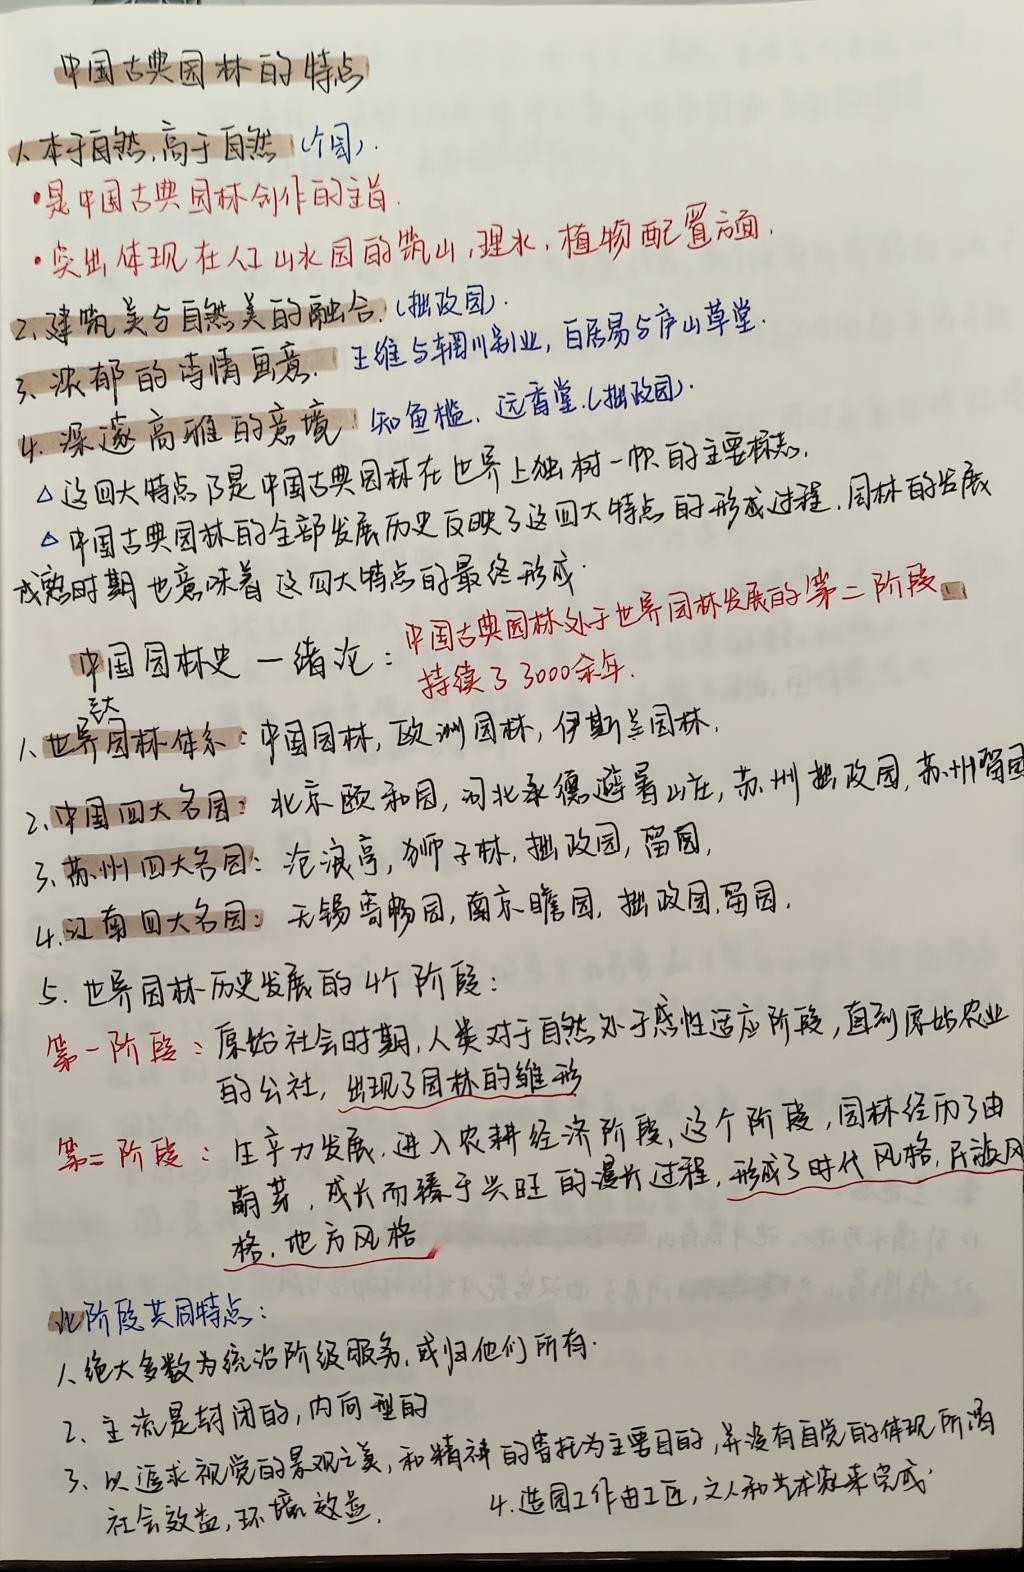 中国古典园林的特点
1、本于自然,高于自然 (个园).
•是中国古典园林创作的主旨.
•突出体现在人工山水园的筑山,理水,植物配置方面.
2、建筑美与自然美的融合.(拙政园).
3、浓郁的诗情画意. 王维与辋川别业,白居易与庐山草堂.
4、深邃高雅的意境 知鱼槛、远香堂.(拙政园).
△这四大特点乃是中国古典园林在世界上独树一帜的主要标志.
△中国古典园林的全部发展历史反映了这四大特点的形成过程.园林的发展
成熟时期也意味着这四大特点的最终形成.
中国园林史—绪论: 中国古典园林处于世界园林发展的第二阶段
持续了3000余年.
三大
1、世界园林体系: 中国园林,欧洲园林,伊斯兰园林.
2、中国四大名园: 北京颐和园,河北承德避暑山庄,苏州拙政园,苏州留园
3、苏州四大名园: 沧浪亭,狮子林,拙政园,留园,
4、江南四大名园: 无锡寄畅园,南京瞻园,拙政园,留园.
5、世界园林历史发展的4个阶段:
第一阶段: 原始社会时期,人类对于自然处于感性适应阶段,直到原始农业
的公社,出现了园林的雏形
第二阶段: 生产力发展.进入农耕经济阶段,这个阶段,园林经历了由
萌芽,成长而臻于兴旺的漫长过程,形成了时代风格,民族风
格,地方风格
此阶段共同特点:
1、绝大多数为统治阶级服务,或归他们所有.
2、主流是封闭的,内向型的
3、以追求视觉的景观之美,和精神的寄托为主要目的,并没有自觉的体现所谓
社会效益,环境效益. 4.造园工作由工匠,文人和艺术家来完成.